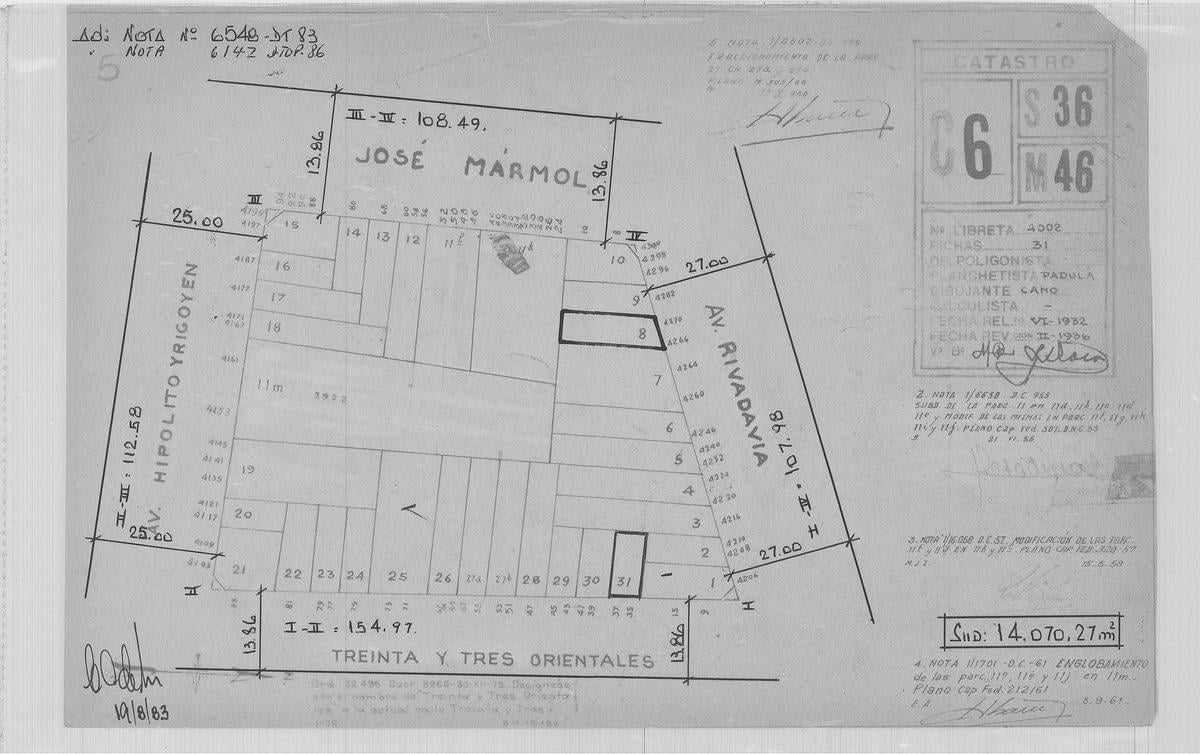 Adj NOTA Nº 6548-DT 83
" NOTA 6142 DTOP.86
5
5. NOTA 1/4002-DC 966
FRACCIONAMIENTO DE LA PARC
27 EN 27a y 27b
PLANO M 505/66
17 X 966
CATASTRO
C 6
S 36
M 46
Nº LIBRETA 4002
FICHAS 31
OP. POLIGONISTA -
PLANCHETISTA PADULA
DIBUJANTE CANO
CALCULISTA -
FECHA REL.TO VI-1932
FECHA REV.GION II-1936
Vº Bº
III-IV: 108.49.
JOSÉ MÁRMOL
13.86
13.86
III
IV
25.00
4199
4197
94
92
90
88
80
68
60
58
56
52
50
48
46
26
24
10
8
4300
4298
4296
15
14
13
12
10
4187
16
27.00
4177
17
9
4282
4171
4167
18
8
4270
4266
4161
11m
3922
7
4264
4260
AV. HIPOLITO YRIGOYEN
AV. RIVADAVIA
4153
6
4246
4240
4232
4145
4141
4135
19
5
4224
4220
4
4121
4117
20
4216
3
II-III: 112.58
IV-I: 107.98
25.00
4109
4210
4208
2
27.00
4103
II
21
22
23
24
25
26
27a
27b
28
29
30
31
1
4206
I
95
81
79
77
75
73
71
60
55
53
51
47
45
43
41
39
37
35
15
9
13.86
I-II: 154.97.
13.86
TREINTA Y TRES ORIENTALES
19/8/83
Ord 32.495-Decr 8266-30-XII-75. Desígnase
con el nombre de Treinta y Tres Orienta-
les a la actual calle Treinta y Tres.
1-76
2. NOTA 1/6658-D.C 955
SUBD. DE LA PARC 11 en 11a, 11b, 11c 11d
11e y MODIF. DE LAS MISMAS EN PARC 11f, 11g, 11h
11i y 11j. PLANO Cap. Fed. 307.D.N.C 55
21-VI-56
3. NOTA 1/16068 D.C.57. MODIFICACIÓN DE LAS PARC.
PLANO CAP. FED. 320-57
M.J.I. 15-5-58
Sup: 14.070,27 m²
4. NOTA 1/1701-D.C-61 ENGLOBAMIENTO
de las parc. 11h, 11i y 11j en 11m.
Plano Cap Fed. 212/61
E.A. 8-9-61